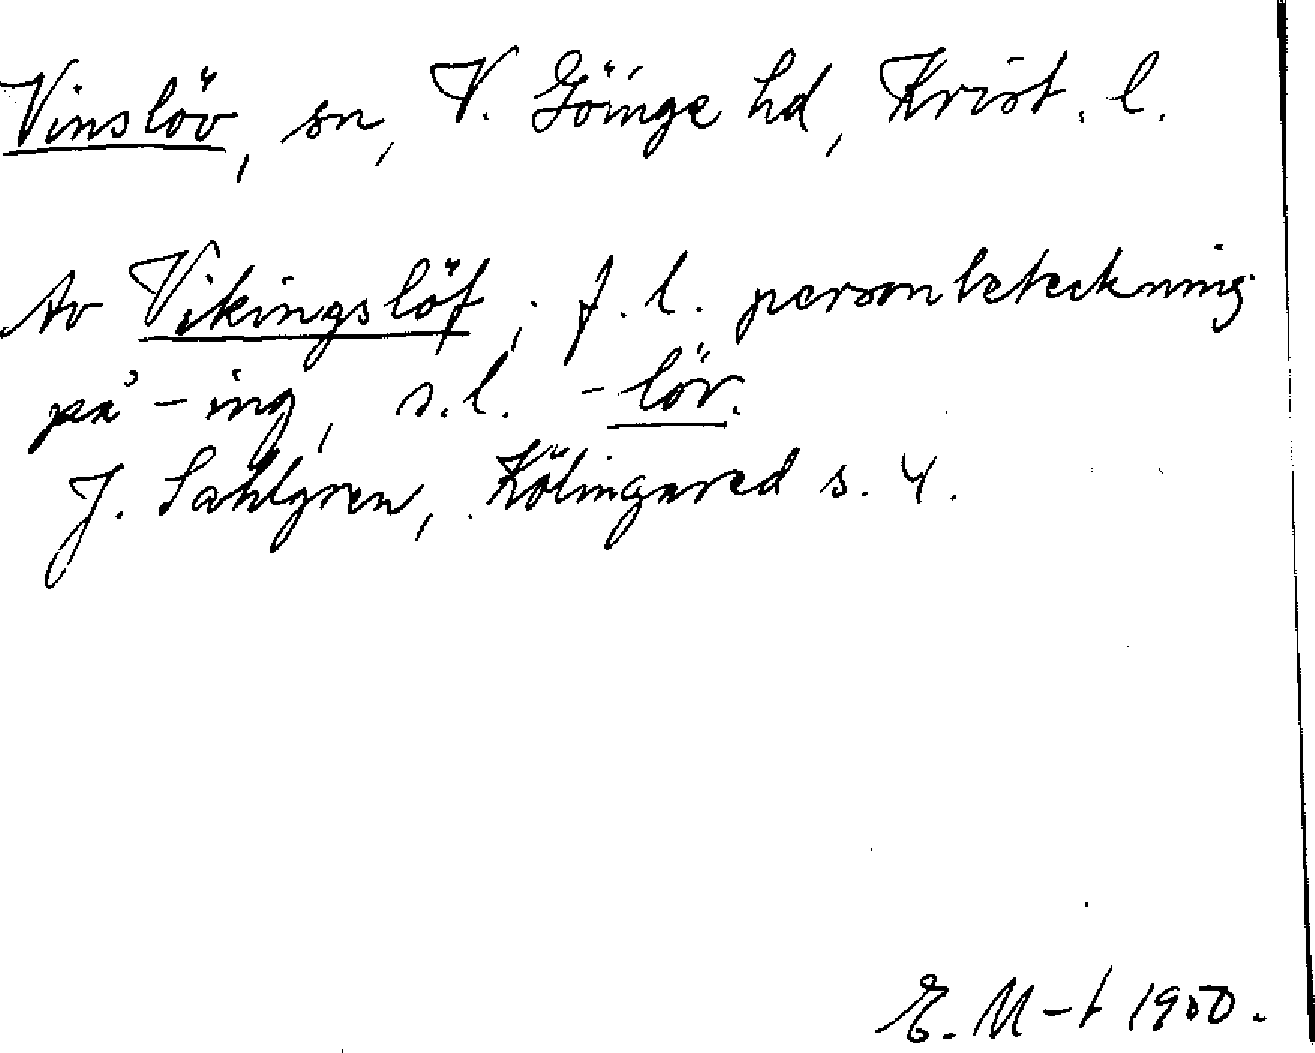 Vinslöv, sn, V. Göinge hd, Krist. l.
Av Vikingslöf; f.l. personbeteckning
på -ing, s.l. -löv.
J. Sahlgren, Kölingared s. 4.
E. M-t 1950.